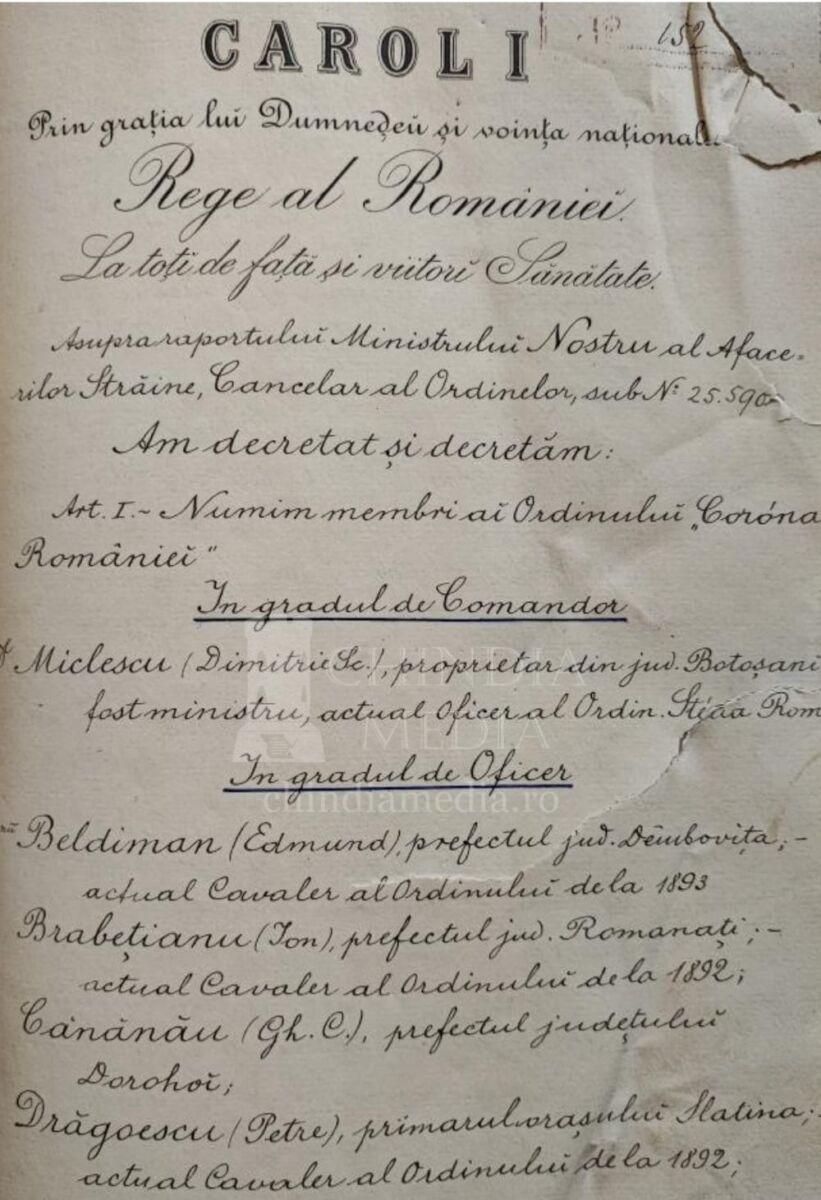 CAROL I
152
Prin grația lui Dumnedeu și voința națională
Rege al României.
La toți de față și viitorĭ Sănătate.
Asupra raportuluĭ Ministruluĭ Nostru al Aface=
rilor Străine, Cancelar al Ordinelor, sub Nº 25.590
Am decretat și decretăm:
Art. I.- Numim membri aĭ Ordinuluĭ „Coróna
Românieĭ"
In gradul de Comandor
Miclescu (Dimitrie Sc.), proprietar din jud. Botoșani
fost ministru, actual Oficer al Ordin. Steaa Rom
In gradul de Oficer
Beldiman (Edmund), prefectul jud. Dêmbovița;-
actual Cavaler al Ordinuluĭ de la 1893
Brabețianu (Ion), prefectul jud. Romanațĭ;-
actual Cavaler al Ordinuluĭ de la 1892;
Cănănău (Gh. C.), prefectul județuluĭ
Dorohoĭ;
Drăgoescu (Petre), primarul orașuluĭ Slatina;-
actual Cavaler al Ordinuluĭ de la 1892;
CHINDIA
MEDIA
chindiamedia.ro